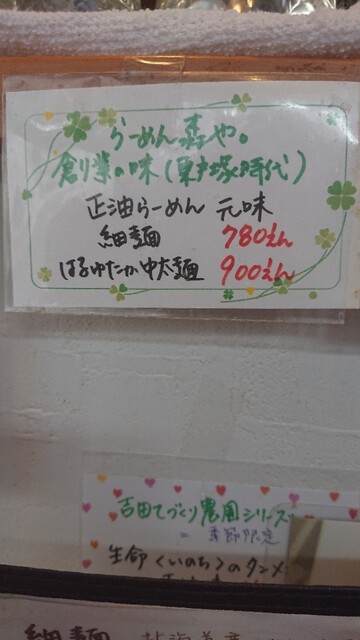 らーめん森や。
創業の味(東戸塚時代)
正油らーめん 元味
細麺 780えん
はるゆたか中太麺 900えん
吉田てづくり農園シリーズ
= 季節限定
生命〈いのち〉のタンメ
細麺